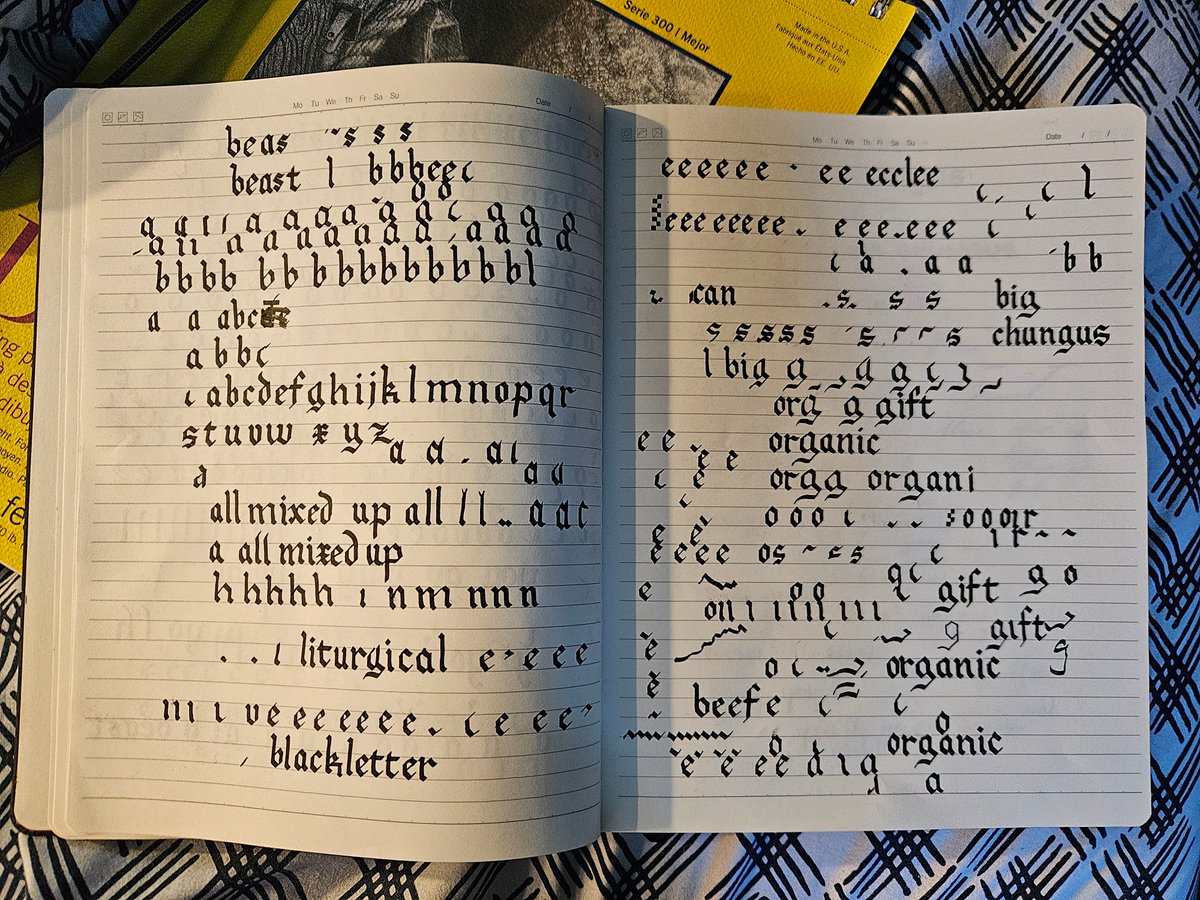 Serie 300 | Mejor
Made in the U.S.A.
Fabriqué aux États-Unis
Hecho en EE. UU.
Mo Tu We Th Fr Sa Su Date / /
beas s s s
beast l b b b e e c
a a a a a a g g g g g
a a a a a a a a a a a
b b b b b b b b b b b b b b b l
a a abc
a b b c
abcdefghijklmnopqr
stuvw x y z
a a . a
a
all mixed up all l l a a c
a all mixed up
h h h h h ı n m n n n
. . ı liturgical e e e e
m ı v e e e e e e e . c e e e
blackletter
Mo Tu We Th Fr Sa Su Date / /
e e e e e e e e ecclee
l
e e e e e e e e e . e e e . e e e c
a . a a b b
can . s . s s big
s s s s s s s chungus
l big g g g
org g gift
e e organic
e e
e orgg organi
o o o ı . . s o o o ı r
e e e e os e s c
e gift g o
o ı ı ı ı ı ı ı ı ı ı
g gift
e o c organic g
e beef e c c
organic
e e e e a ı g
a